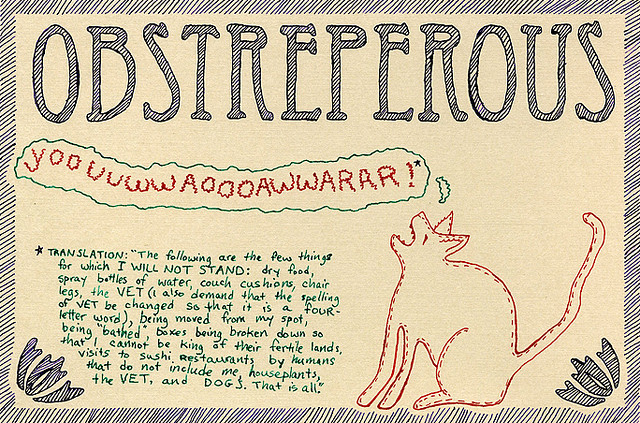 OBSTREPEROUS
YOOUUUWWAOOOAWWARAR!*
* TRANSLATION: "The following are the few things
for which I WILL NOT STAND: dry food,
spray bottles of water, couch cushions, chair
legs, the VET (I also demand that the spelling
of VET be changed so that it is a FOUR-
letter word), being moved from my spot,
being "bathed" boxes being broken down so
that I cannot be king of their fertile lands,
visits to sushi restaurants by humans
that do not include me, houseplants,
the VET, and DOGS. That is all."